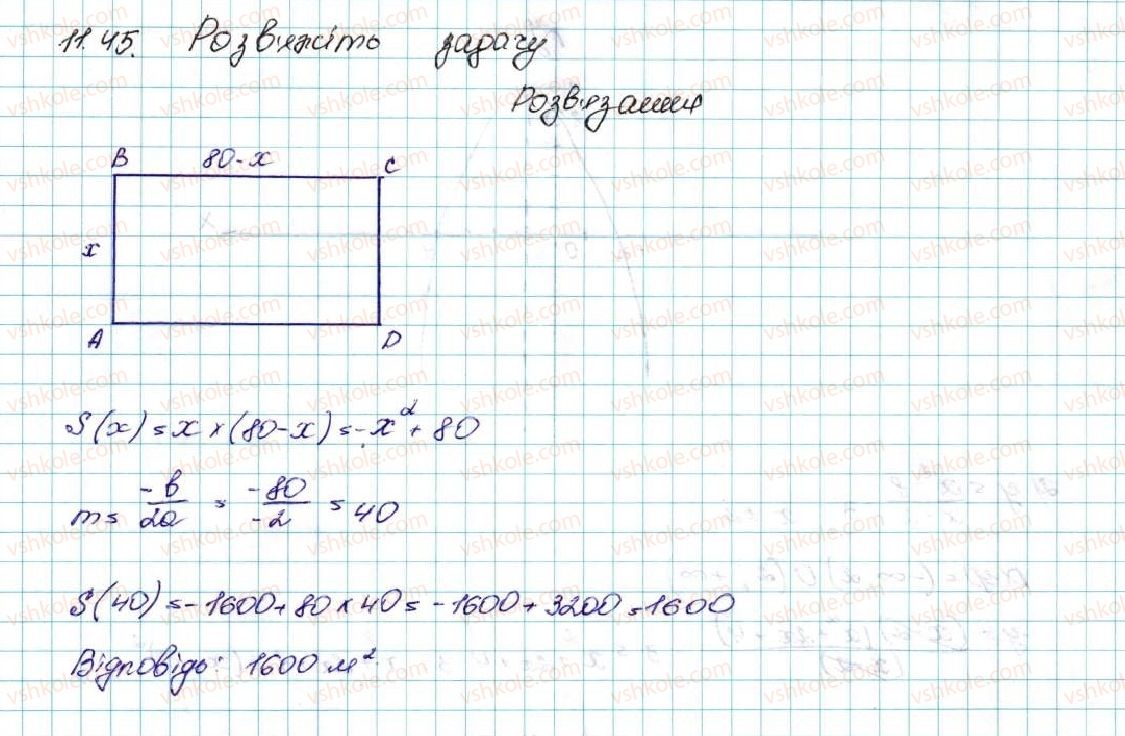 11.45. Розв'яжіть задачу
Розв'язання
B 80-x C
x
A D
S(x) = x × (80-x) = -x² + 80
m = -b/2a = -80/-2 = 40
S(40) = -1600 + 80 × 40 = -1600 + 3200 = 1600
Відповідь: 1600 м²
vshkole.com